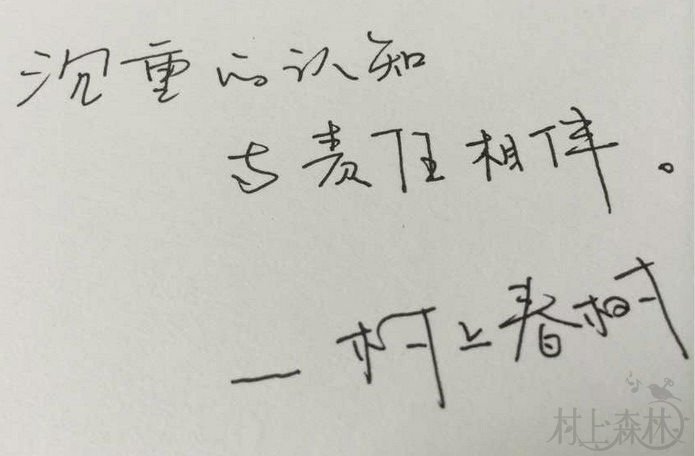 沉重的认知
与责任相伴。
— 村上春树
村上森林